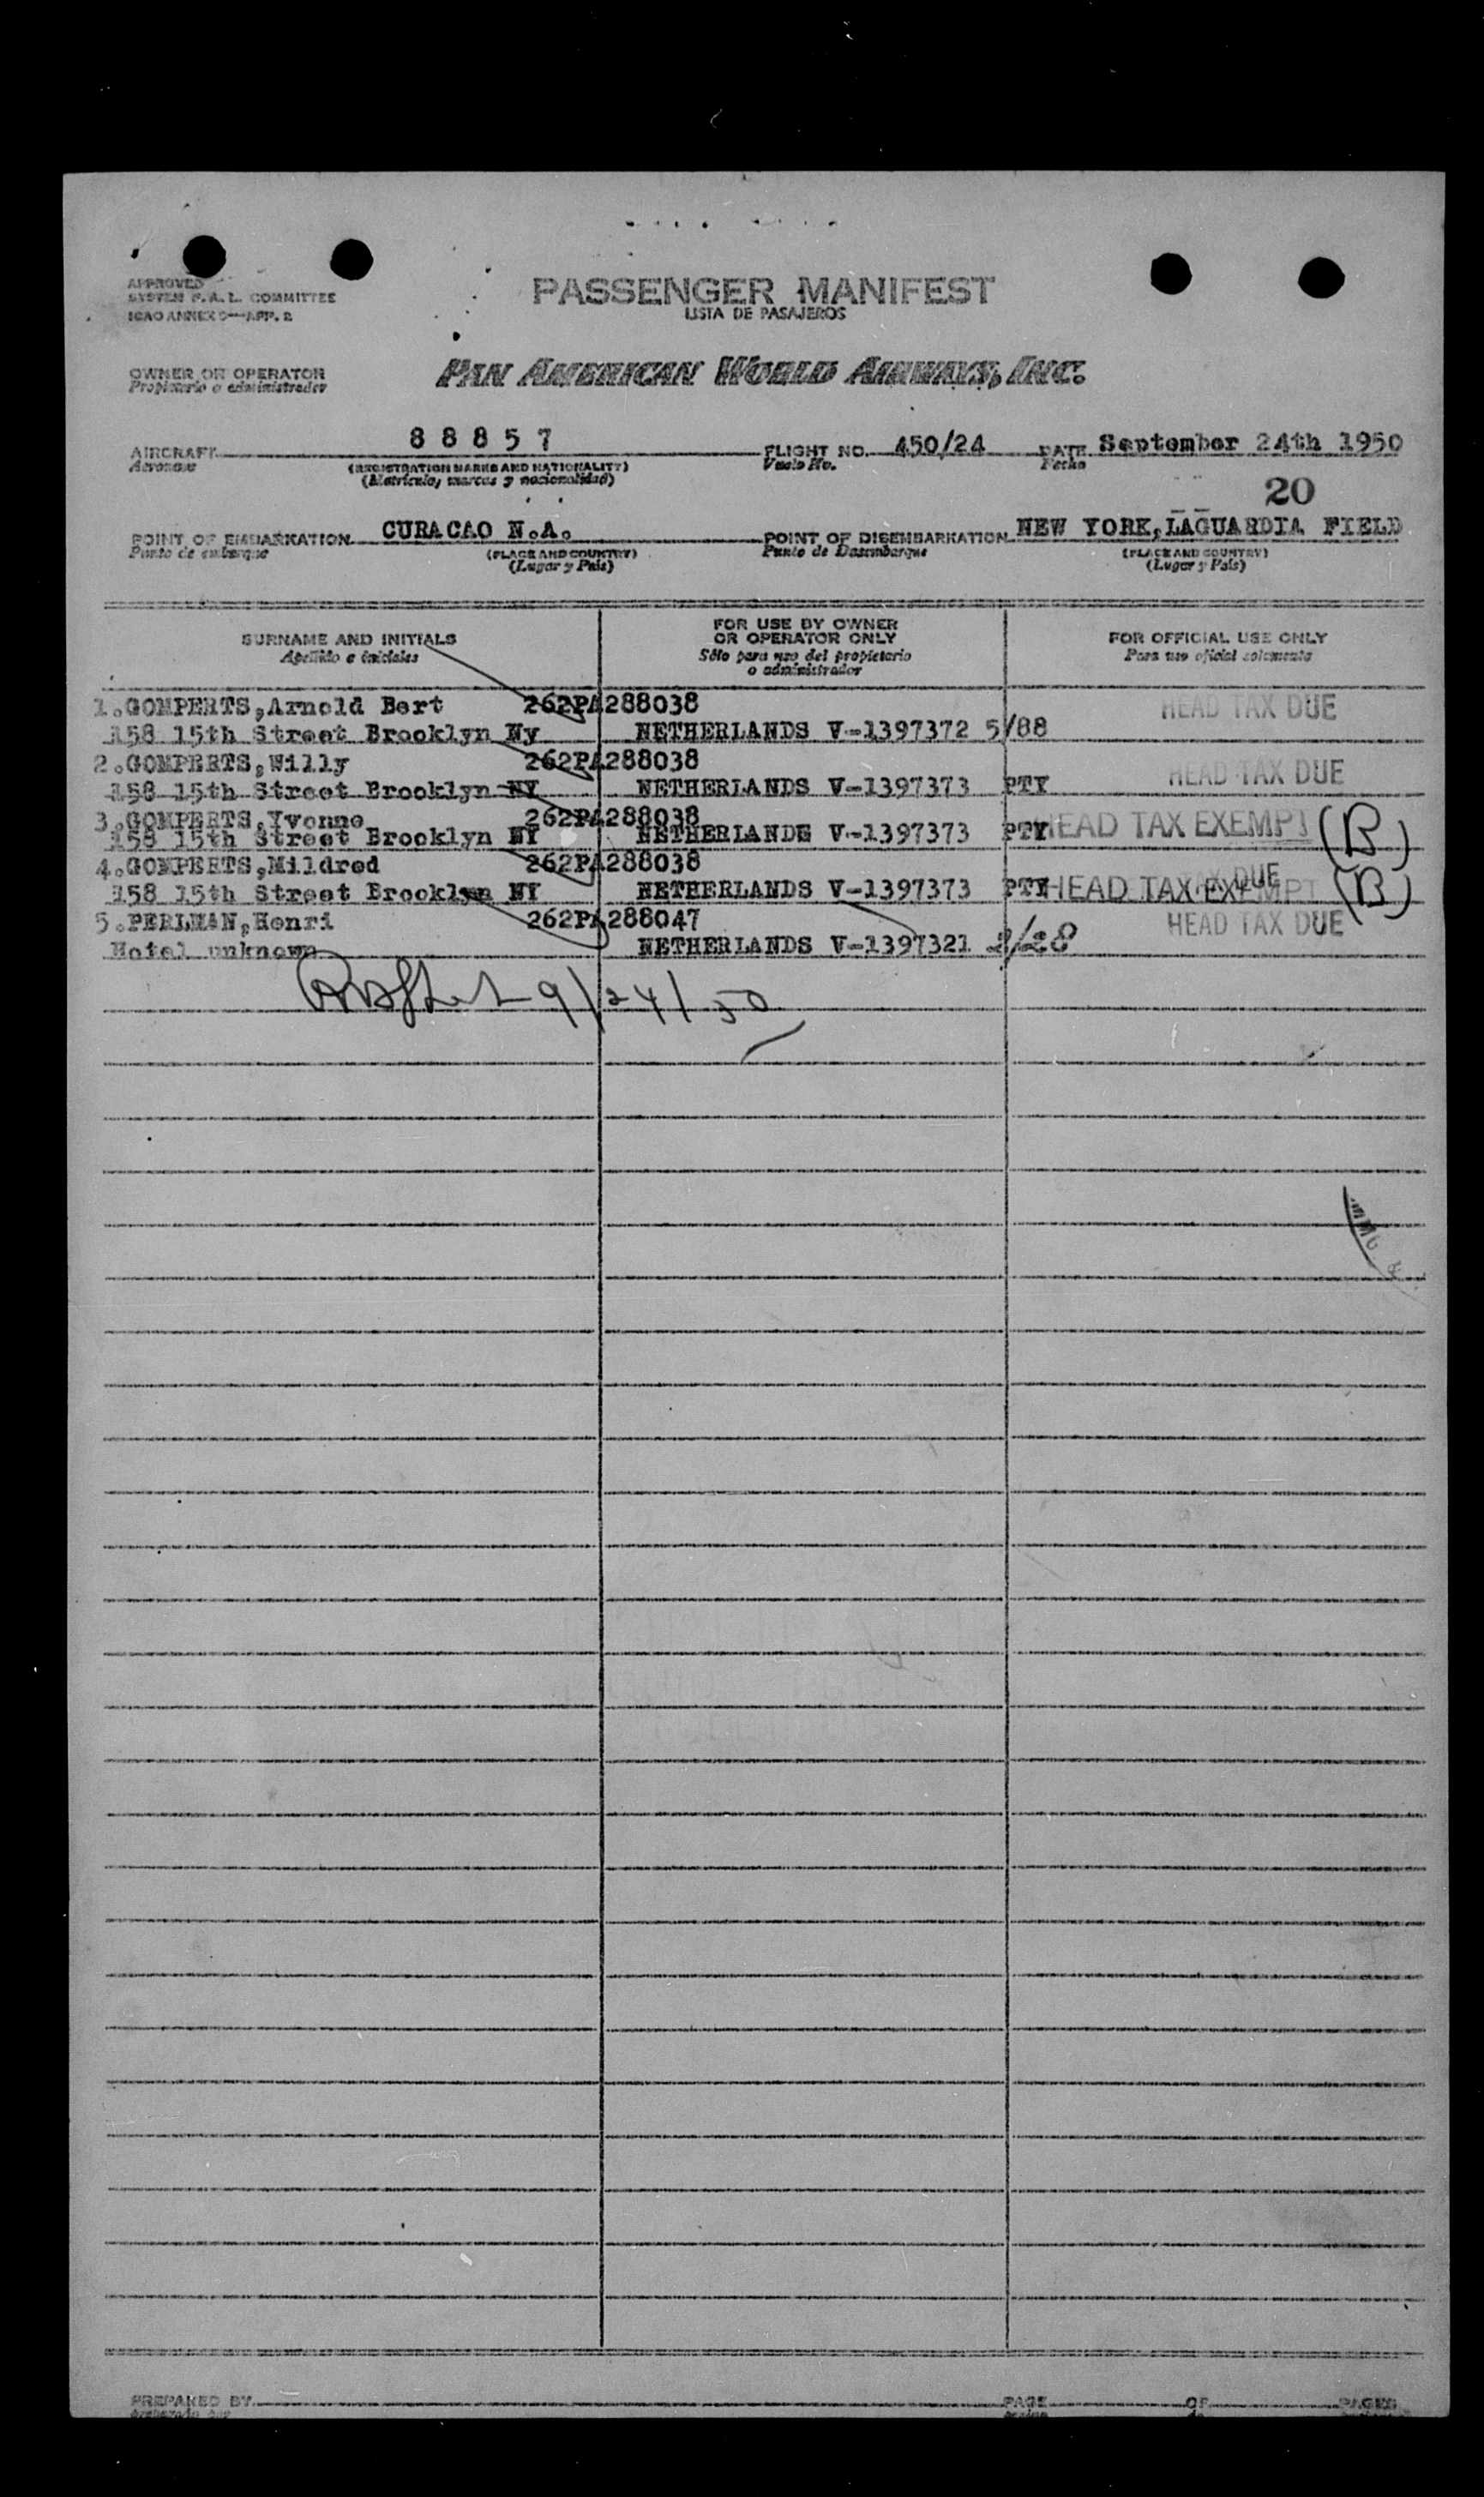 APPROVED
SYSTEM F.A.L. COMMITTEE
ICAO ANNEX 9—APP. 2
PASSENGER MANIFEST
LISTA DE PASAJEROS
OWNER OR OPERATOR
Propietario o administrador
PAN AMERICAN WORLD AIRWAYS, INC.
AIRCRAFT 8 8 8 5 7 FLIGHT NO. 450/24 DATE September 24th 1950
Aeronave (REGISTRATION MARKS AND NATIONALITY) Vuelo No. Fecha
(Matrícula, marcas y nacionalidad)
20
POINT OF EMBARKATION CURACAO N.A. POINT OF DISEMBARKATION NEW YORK,LAGUARDIA FIELD
Punto de embarque (PLACE AND COUNTRY) Punto de Desembarque (PLACE AND COUNTRY)
(Lugar y País) (Lugar y País)
SURNAME AND INITIALS
Apellido e iniciales
FOR USE BY OWNER
OR OPERATOR ONLY
Sólo para uso del propietario
o administrador
FOR OFFICIAL USE ONLY
Para uso oficial solamente
1.GOMPERTS,Arnold Bert 262PA288038 HEAD TAX DUE
158 15th Street Brooklyn Ny NETHERLANDS V-1397372 5/88
2.GOMPERTS,Willy 262PA288038 HEAD TAX DUE
158 15th Street Brooklyn NY NETHERLANDS V-1397373 PTY
3.GOMPERTS,Yvonne 262PA288038
158 15th Street Brooklyn NY NETHERLANDS V-1397373 PTY HEAD TAX EXEMPT (B)
4.GOMPERTS,Mildred 262PA288038 TAX DUE
158 15th Street Brooklyn NY NETHERLANDS V-1397373 PTY HEAD TAX EXEMPT (B)
5.PERLMAN,Henri 262PA288047 HEAD TAX DUE
Hotel unknown NETHERLANDS V-1397321 2/28
9/24/50
PREPARED BY PAGE OF PAGES